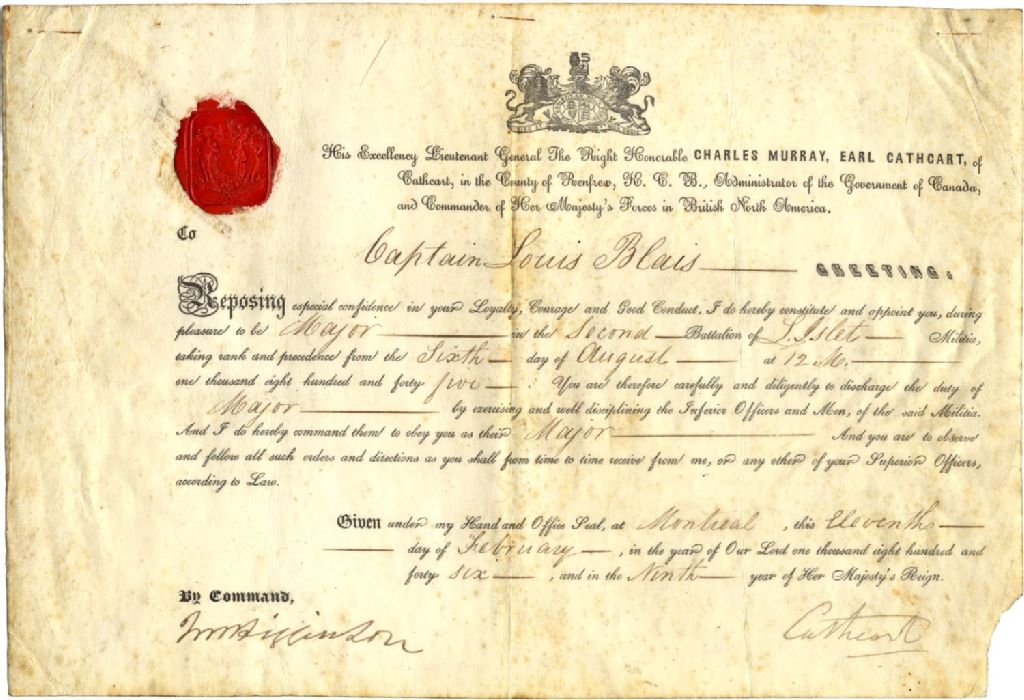 His Excellency Lieutenant General The Right Honorable CHARLES MURRAY, EARL CATHCART, of
Cathcart, in the County of Renfrew, K. C. B., Administrator of the Government of Canada,
and Commander of Her Majesty's Forces in British North America.
To
Captain Louis Blais GREETING:
Reposing especial confidence in your Loyalty, Courage and Good Conduct, I do hereby constitute and appoint you, during
pleasure to be Major in the Second Battalion of L'Islet Militia,
taking rank and precedence from the Sixth day of August at 12 M.
one thousand eight hundred and forty five : You are therefore carefully and diligently to discharge the duty of
Major by exercising and well disciplining the Inferior Officers and Men, of the said Militia.
And I do hereby command them to obey you as their Major And you are to observe
and follow all such orders and directions as you shall from time to time receive from me, or any other of your Superior Officers,
according to Law.
Given under my Hand and Office Seal, at Montreal, this Eleventh
day of February, in the year of Our Lord one thousand eight hundred and
forty six, and in the Ninth year of Her Majesty's Reign.
By Command,
Cathcart